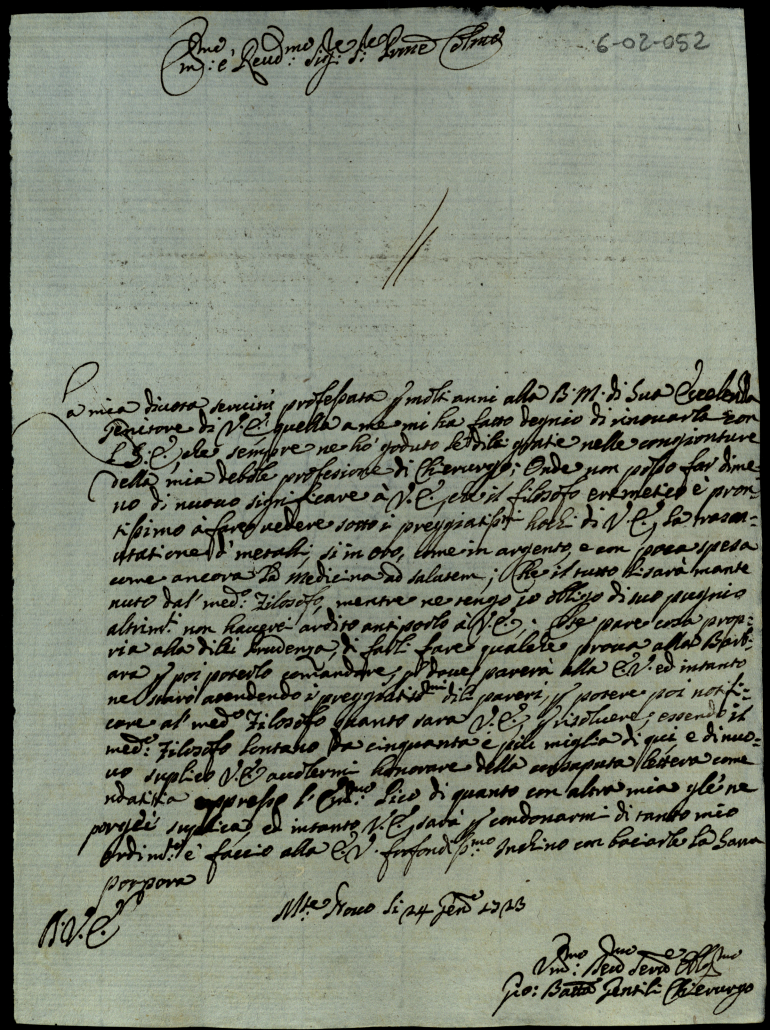 6-02-052
Em:mo e Reud:mo Sig:re
La mia diuota seruitù professata p molti anni alla B. M. di Sua Eccelenza
Genitore di V. E. quella a me mi ha fatto degnio di rinouarla con
che sempre ne hò goduto gratie nelle congionture
della mia debole professione di Chierurgo; Onde non posso far di me-
no di nuouo significare à V. E. che il filosofo ermetico è pron-
tissimo à fare uedere sotto i preggiatissmi hochi di V. E. la trasm-
utatione d' metalli, si in oro, come in argento, e con poca spesa
come ancora la medicina ad salutem; Che il tutto li sarà mante
nuto dal med:o Filosofo, mentre ne tengo io obligo di suo pugnio
altrim:ti non hauerei ardito antiporlo à V. E. Che pare cosa prop-
ria alla di lei prudenza, di farli fare qualche proua alla Barb-
ara p poi poterlo comandare, ò doue parerà alla E. V. ed intanto
ne starò atendendo i preggiatiss:mi di lei pareri, p potere poi notifi-
care al med:o Filosofo quanto sara V. E. p risoluere; essendo il
med:o Filosofo lontano da cinquanta e più miglia di quì, e di nuo-
uo suplico V. E. a uolermi honorare della consaputa lettera come
ndatitia appresso l' di quanto con altra mia gle ne
porgei suplica, ed intanto V. E. sarà p condonarmi di tanto mio
ardim:to e faccio alla E. V. profondiss:mo Inchino con baciarle la Sacra
porpora
M:te Nouo li 24 Gen:ro 1723
D. V. E.
Vm:mo Deu:mo Seru:e Obl:mo
Gio: Batta Gentili Chierurgo